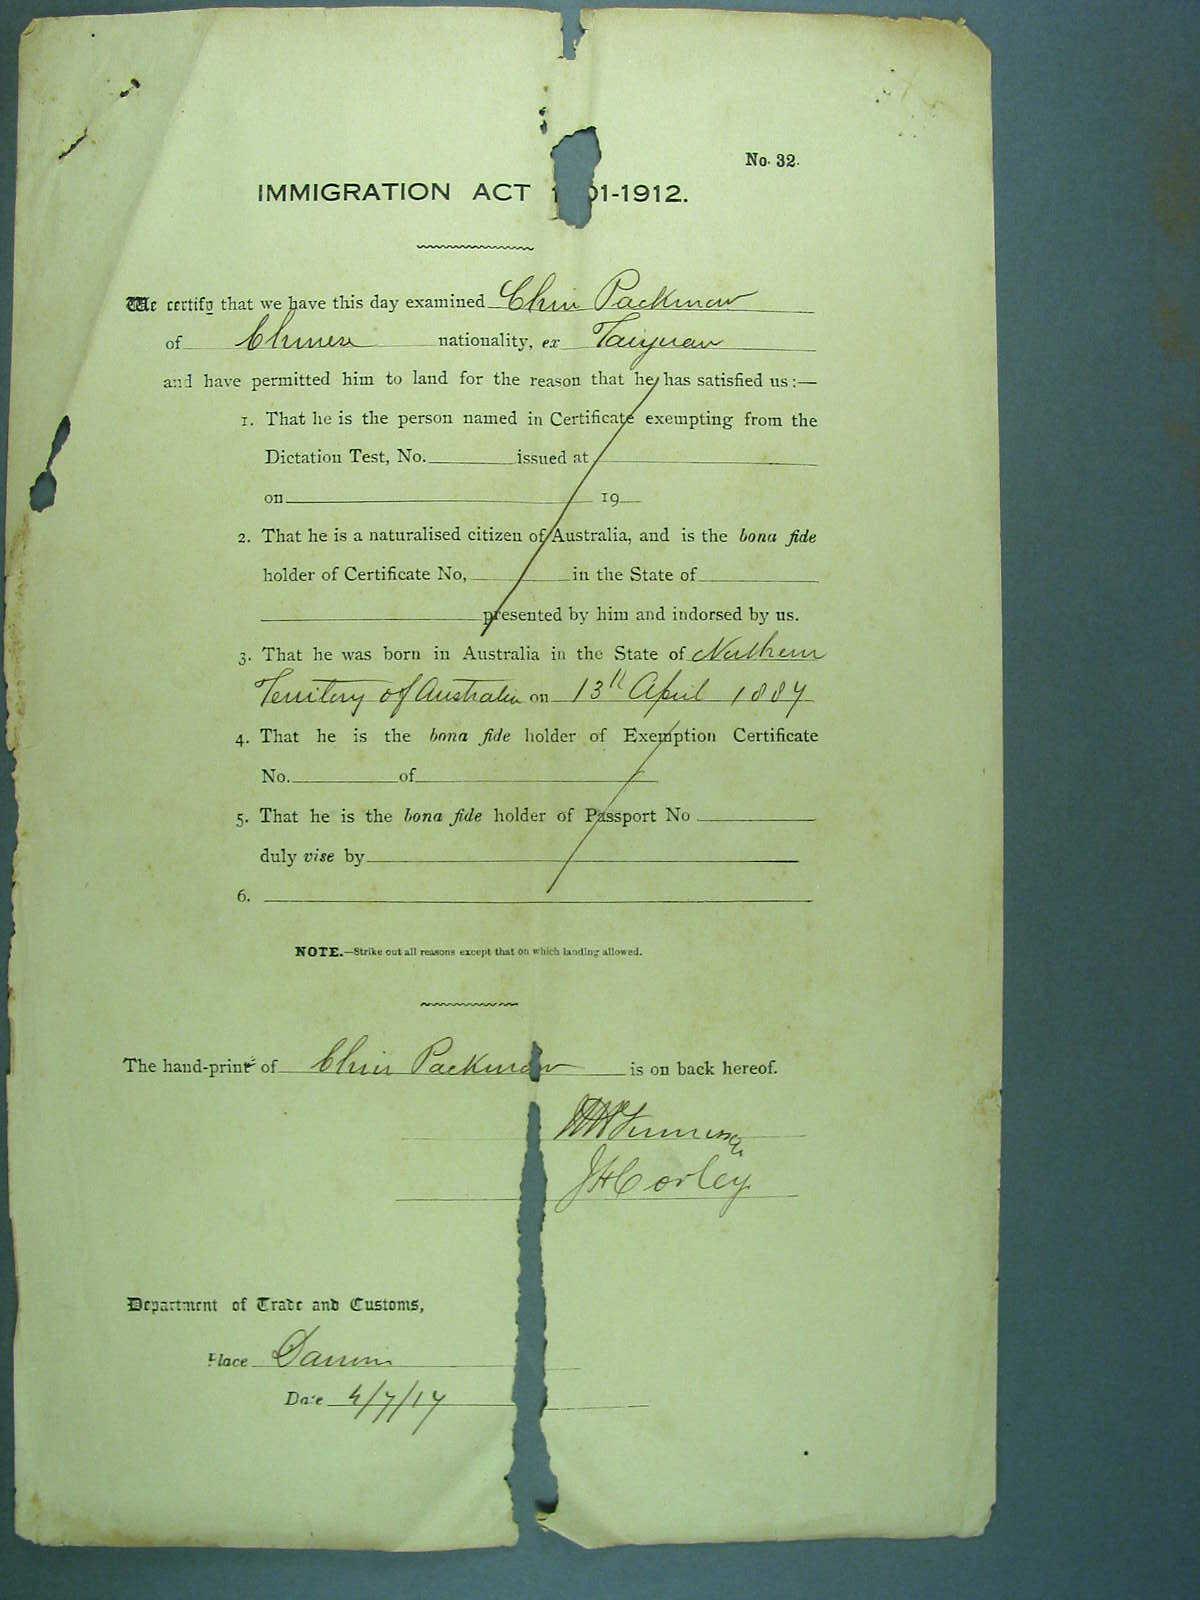 No. 32.
IMMIGRATION ACT 1901-1912.
We certify that we have this day examined Chin Packmow
of Chinese nationality, ex Taiyuan
and have permitted him to land for the reason that he has satisfied us :—
1. That he is the person named in Certificate exempting from the
Dictation Test, No. issued at
on 19
2. That he is a naturalised citizen of Australia, and is the bona fide
holder of Certificate No, in the State of
presented by him and indorsed by us.
3. That he was born in Australia in the State of Northern
Territory of Australia on 13th April 1887
4. That he is the bona fide holder of Exemption Certificate
No. of
5. That he is the bona fide holder of Passport No
duly vise by
6.
NOTE.—Strike out all reasons except that on which landing allowed.
The hand-prints of Chin Packmow is on back hereof.
JHCorley
Department of Trade and Customs,
Place Darwin
Date 4/7/17